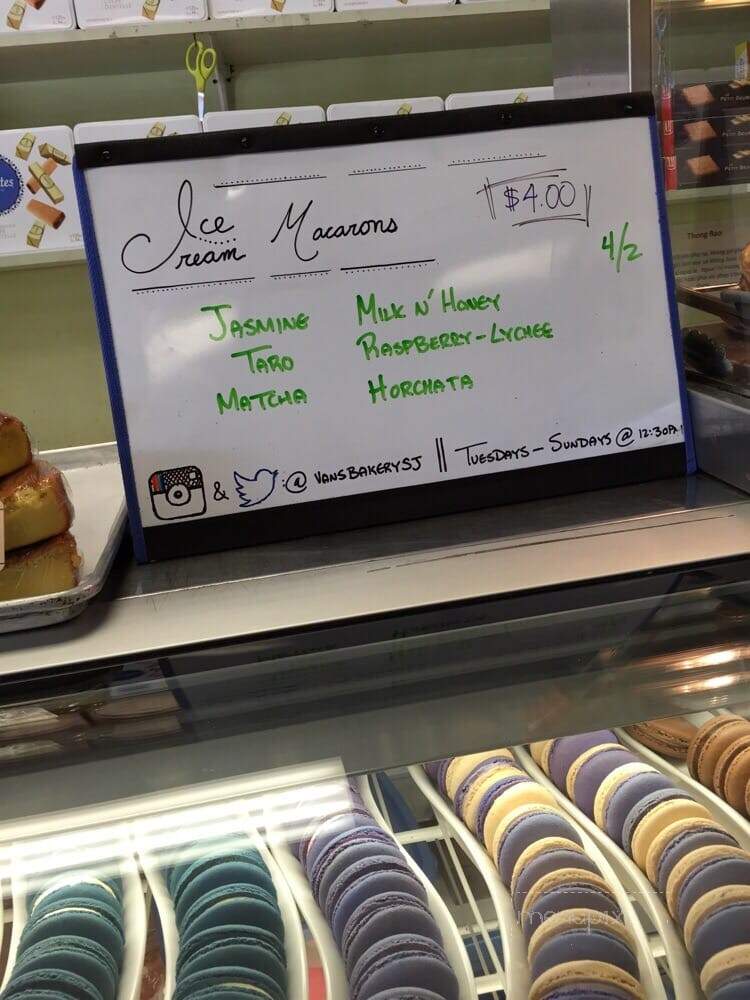 Ice
Cream Macarons
$4.00
4/2
JASMINE MILK N' HONEY
TARO RASPBERRY-LYCHEE
MATCHA HORCHATA
& :@ VANSBAKERYSJ || TUESDAYS - SUNDAYS @ 12:30PM
Thong Bao